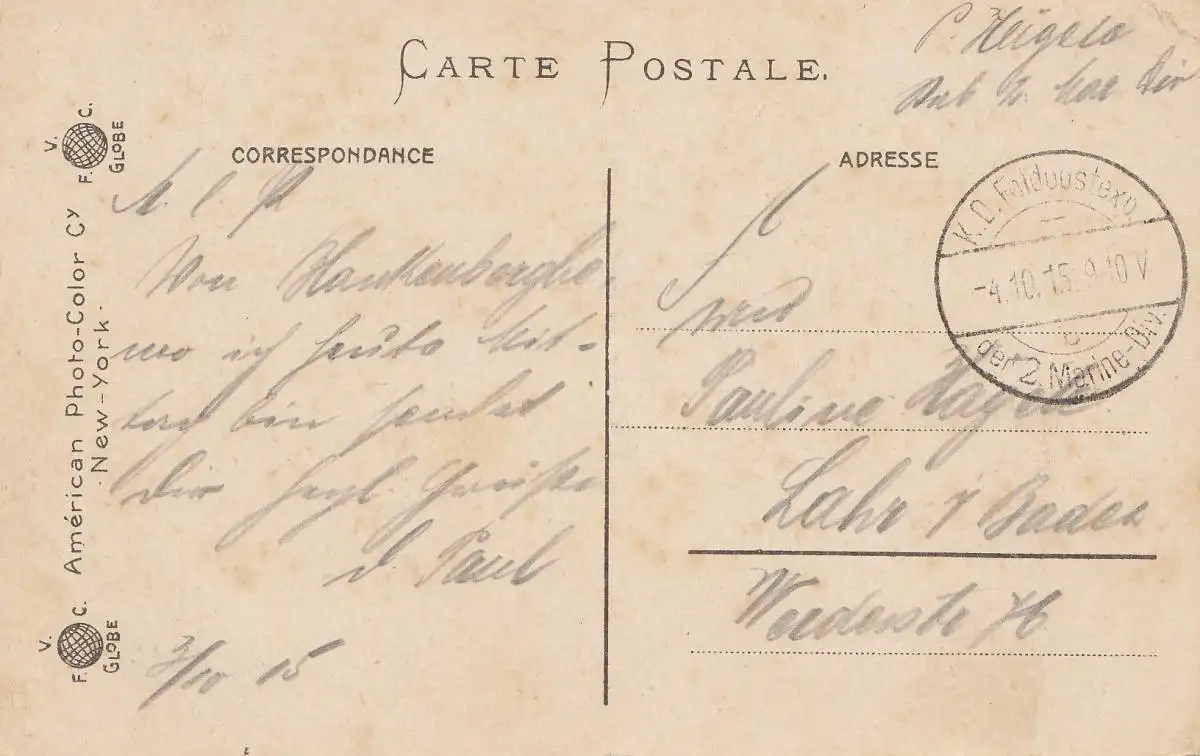 CARTE POSTALE.
P. Heigele
2. Mar Div
CORRESPONDANCE
ADRESSE
M. l.
Von Blankenberghe
wo ich heute Mit-
tag bin sendet
Dir herzl. Grüße
d. Paul
3/10 15
K.D. Feldpostexp.
-4.10.15. 9-10 V
c
der 2. Marine-Div.
Pauline
Lahr i/ Baden
Werderstr 76
V. C.
F. GLOBE
Américan Photo-Color Cy
·New-York·
V. C.
F. GLOBE